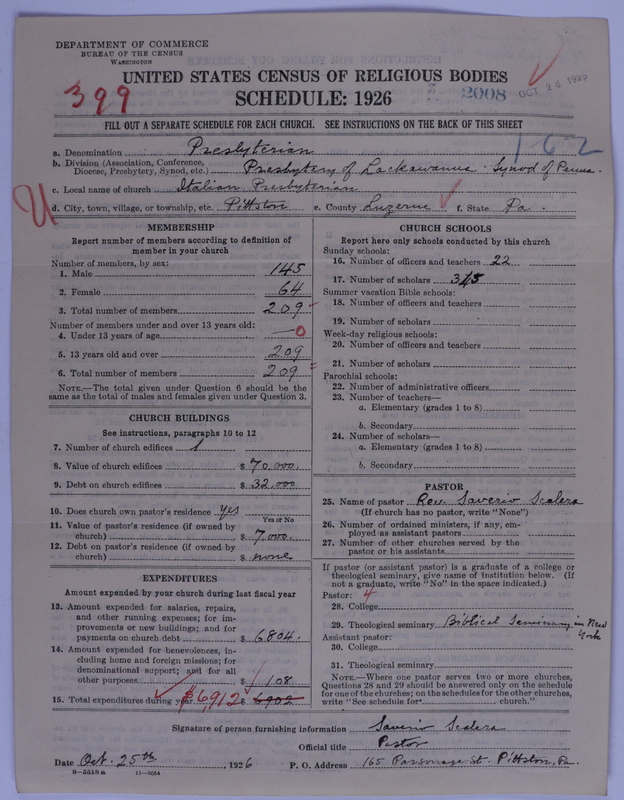 DEPARTMENT OF COMMERCE
BUREAU OF THE CENSUS
WASHINGTON
UNITED STATES CENSUS OF RELIGIOUS BODIES
399
SCHEDULE: 1926
2008 OCT 26 1926
FILL OUT A SEPARATE SCHEDULE FOR EACH CHURCH. SEE INSTRUCTIONS ON THE BACK OF THIS SHEET
162
a. Denomination Presbyterian
b. Division (Association, Conference, Diocese, Presbytery, Synod, etc.) Presbytery of Lackawanna - Synod of Penna.
c. Local name of church Italian Presbyterian
d. City, town, village, or township, etc. Pittston e. County Luzerne f. State Pa.
MEMBERSHIP
Report number of members according to definition of
member in your church
Number of members, by sex:
1. Male 145
2. Female 64
3. Total number of members 209
Number of members under and over 13 years old:
4. Under 13 years of age — 0
5. 13 years old and over 209
6. Total number of members 209
NOTE.—The total given under Question 6 should be the
same as the total of males and females given under Question 3.
CHURCH BUILDINGS
See instructions, paragraphs 10 to 12
7. Number of church edifices 1
8. Value of church edifices $ 70,000.
9. Debt on church edifices $ 32,000
10. Does church own pastor's residence? Yes
Yes or No
11. Value of pastor's residence (if owned by
church) $ 7,000.
12. Debt on pastor's residence (if owned by
church) $ none
EXPENDITURES
Amount expended by your church during last fiscal year
13. Amount expended for salaries, repairs,
and other running expenses; for im-
provements or new buildings; and for
payments on church debt $ 6804.
14. Amount expended for benevolences, in-
cluding home and foreign missions; for
denominational support; and for all
other purposes $ 108
15. Total expenditures during year $6,912 $ 6902
CHURCH SCHOOLS
Report here only schools conducted by this church
Sunday schools:
16. Number of officers and teachers 22
17. Number of scholars
Summer vacation Bible schools:
18. Number of officers and teachers
19. Number of scholars
Week-day religious schools:
20. Number of officers and teachers
21. Number of scholars
Parochial schools:
22. Number of administrative officers
23. Number of teachers—
a. Elementary (grades 1 to 8)
b. Secondary
24. Number of scholars—
a. Elementary (grades 1 to 8)
b. Secondary
PASTOR
25. Name of pastor Rev. Saverio Scalera
(If church has no pastor, write "None")
26. Number of ordained ministers, if any, em-
ployed as assistant pastors
27. Number of other churches served by the
pastor or his assistants
If pastor (or assistant pastor) is a graduate of a college or
theological seminary, give name of institution below. (If
not a graduate, write "No" in the space indicated.)
Pastor: 4
28. College
29. Theological seminary Biblical Seminary in New York
Assistant pastor:
30. College
31. Theological seminary
NOTE.—Where one pastor serves two or more churches,
Questions 28 and 29 should be answered only on the schedule
for one of the churches; on the schedules for the other churches,
write "See schedule for church."
Signature of person furnishing information Saverio Scalera
Official title Pastor
Date Oct. 25th, 1926 P. O. Address 165 Parsonage St. Pittston, Pa.
8—5518 a 11—9054